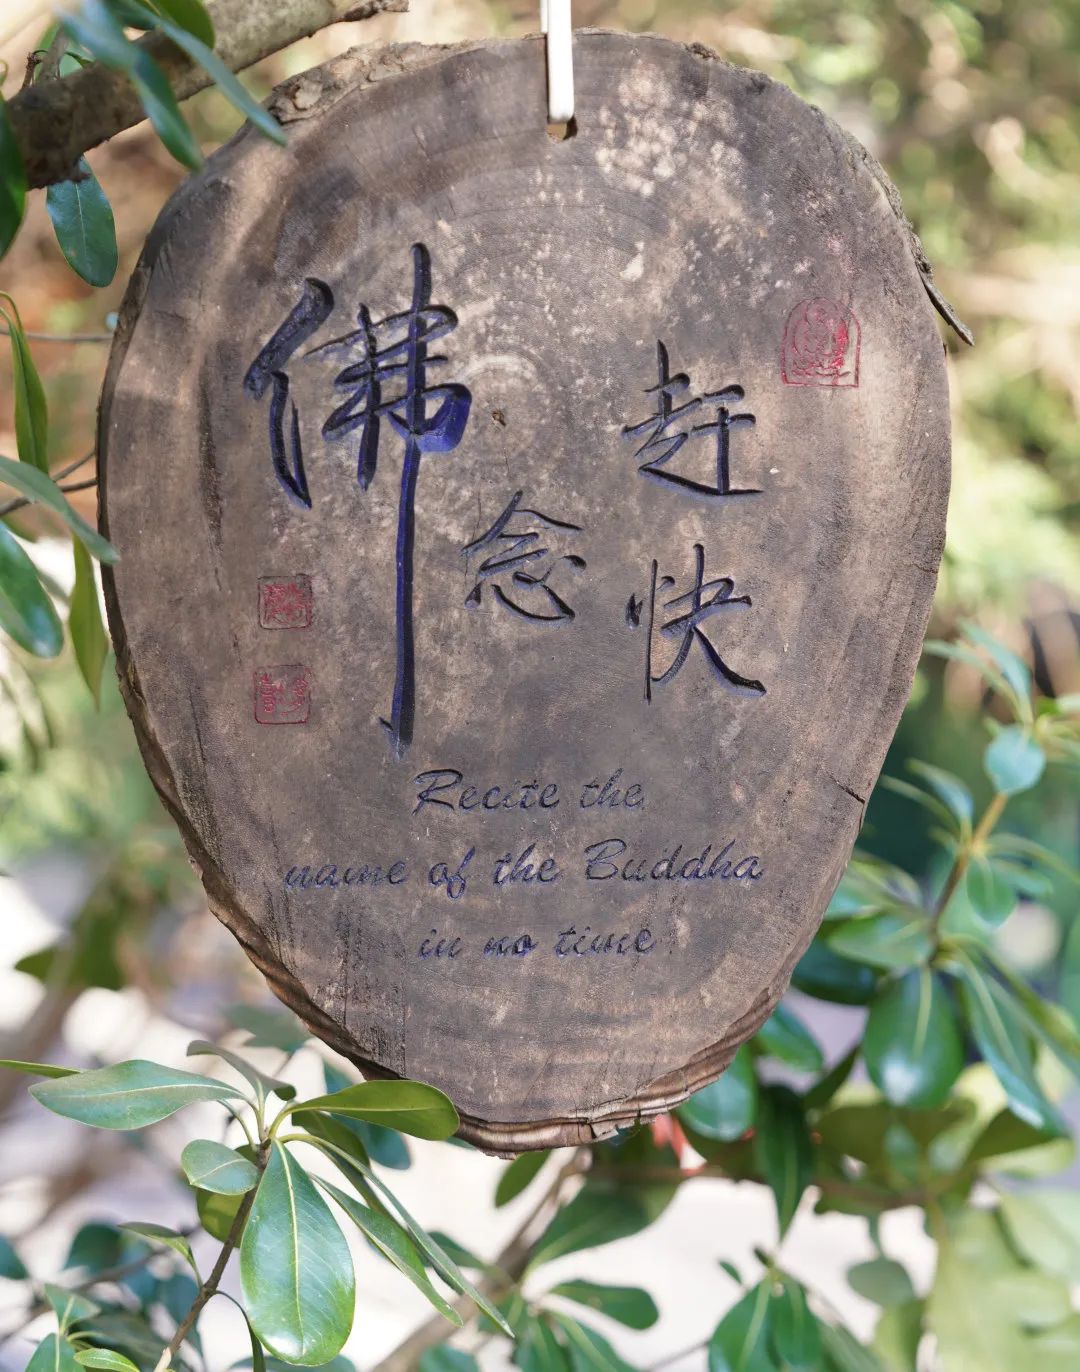 赶快
念佛
Recite the
name of the Buddha
in no time